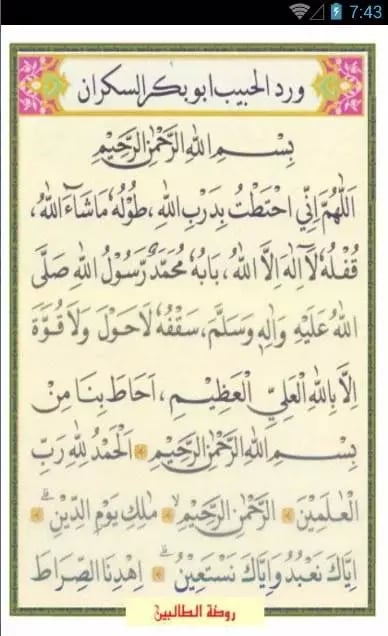 7:43
ورد الحبيب ابوبكر السكران
بِسْــمِ اللهِ الرَّحْمٰنِ الرَّحِيْمِ
اَللّٰهُمَّ اِنِّي احْتَطْتُ بِدَرْبِ اللهِ ، طُوْلُهُ مَاشَآءَ اللهُ ،
قُفْلُهُ لَآ اِلٰهَ اِلَّا اللهُ ، بَابُهُ مُحَمَّدٌ رَّسُوْلُ اللهِ صَلَّى
اللهُ عَلَيْهِ وَاٰلِهِ وَسَلَّمَ ، سَقْفُهُ لَاحَوْلَ وَلَا قُوَّةَ
اِلَّا بِاللهِ الْعَلِيِّ الْعَظِيْـمِ ، اَحَاطَ بِنَا مِنْ
بِسْــمِ اللهِ الرَّحْمٰنِ الرَّحِيْمِ اَلْحَمْدُ لِلّٰهِ رَبِّ
الْعٰلَمِيْنَ الرَّحْمٰنِ الرَّحِيْمِ ۙ مٰلِكِ يَوْمِ الدِّيْنِ ۗ
اِيَّاكَ نَعْبُدُ وَاِيَّاكَ نَسْتَعِيْنُ ۗ اِهْدِنَا الصِّرَاطَ
روضة الطالبين